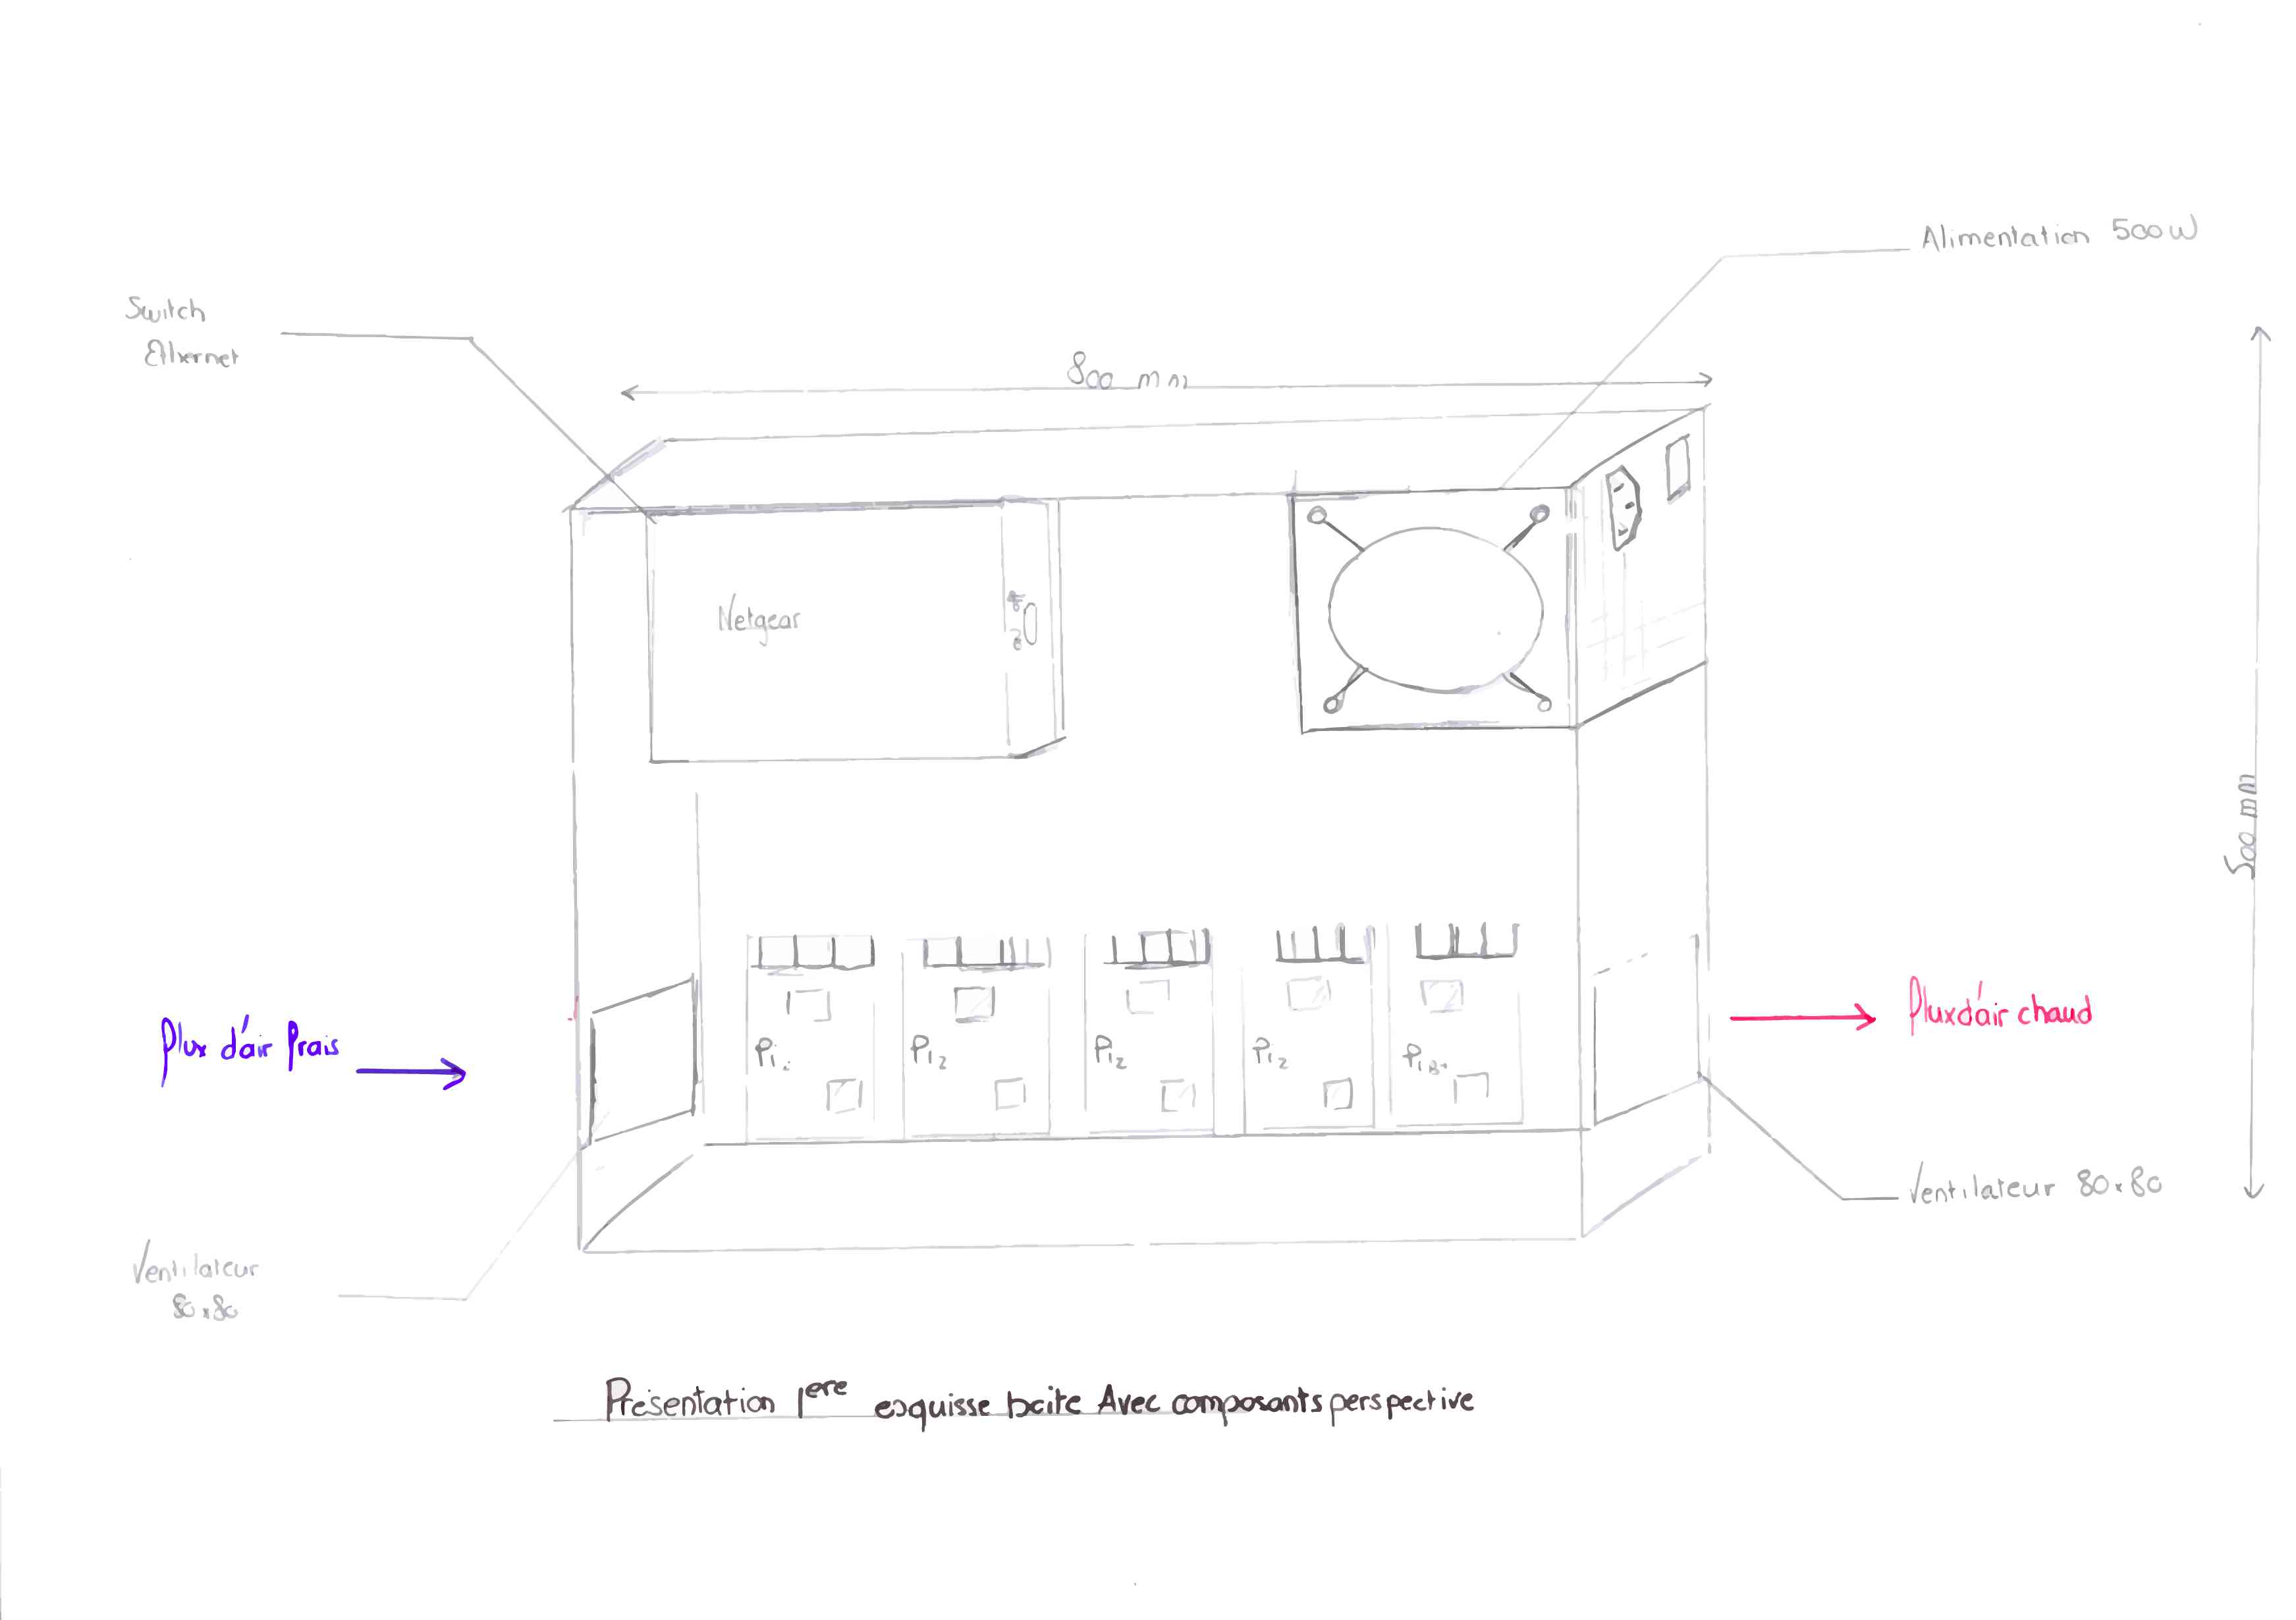 Alimentation 500W
Switch
Ethernet
800 mm
Netgear
500 mm
Flux d'air frais
Flux d'air chaud
Pi2
Pi2
Pi2
PiB+
Ventilateur 80x80
Ventilateur
80x80
Présentation 1ere esquisse boite Avec composants perspective